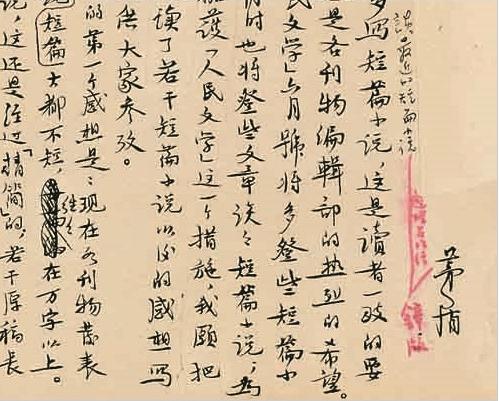 谈最近的短篇小说
茅盾
多写短篇小说，这是读者一致的要
是各刊物编辑部的热烈的希望。
民文学」六月號将多登些短篇小
时也将登些文章谈谈短篇小说，为
护「人民文学」这一个措施，我愿把
读了若干短篇小说以后的感想写
供大家参攷。
的第一个感想是：现在各刊物发表
短篇大都不短，往往在万字以上。
这还是经过「精简」的，若干原稿长